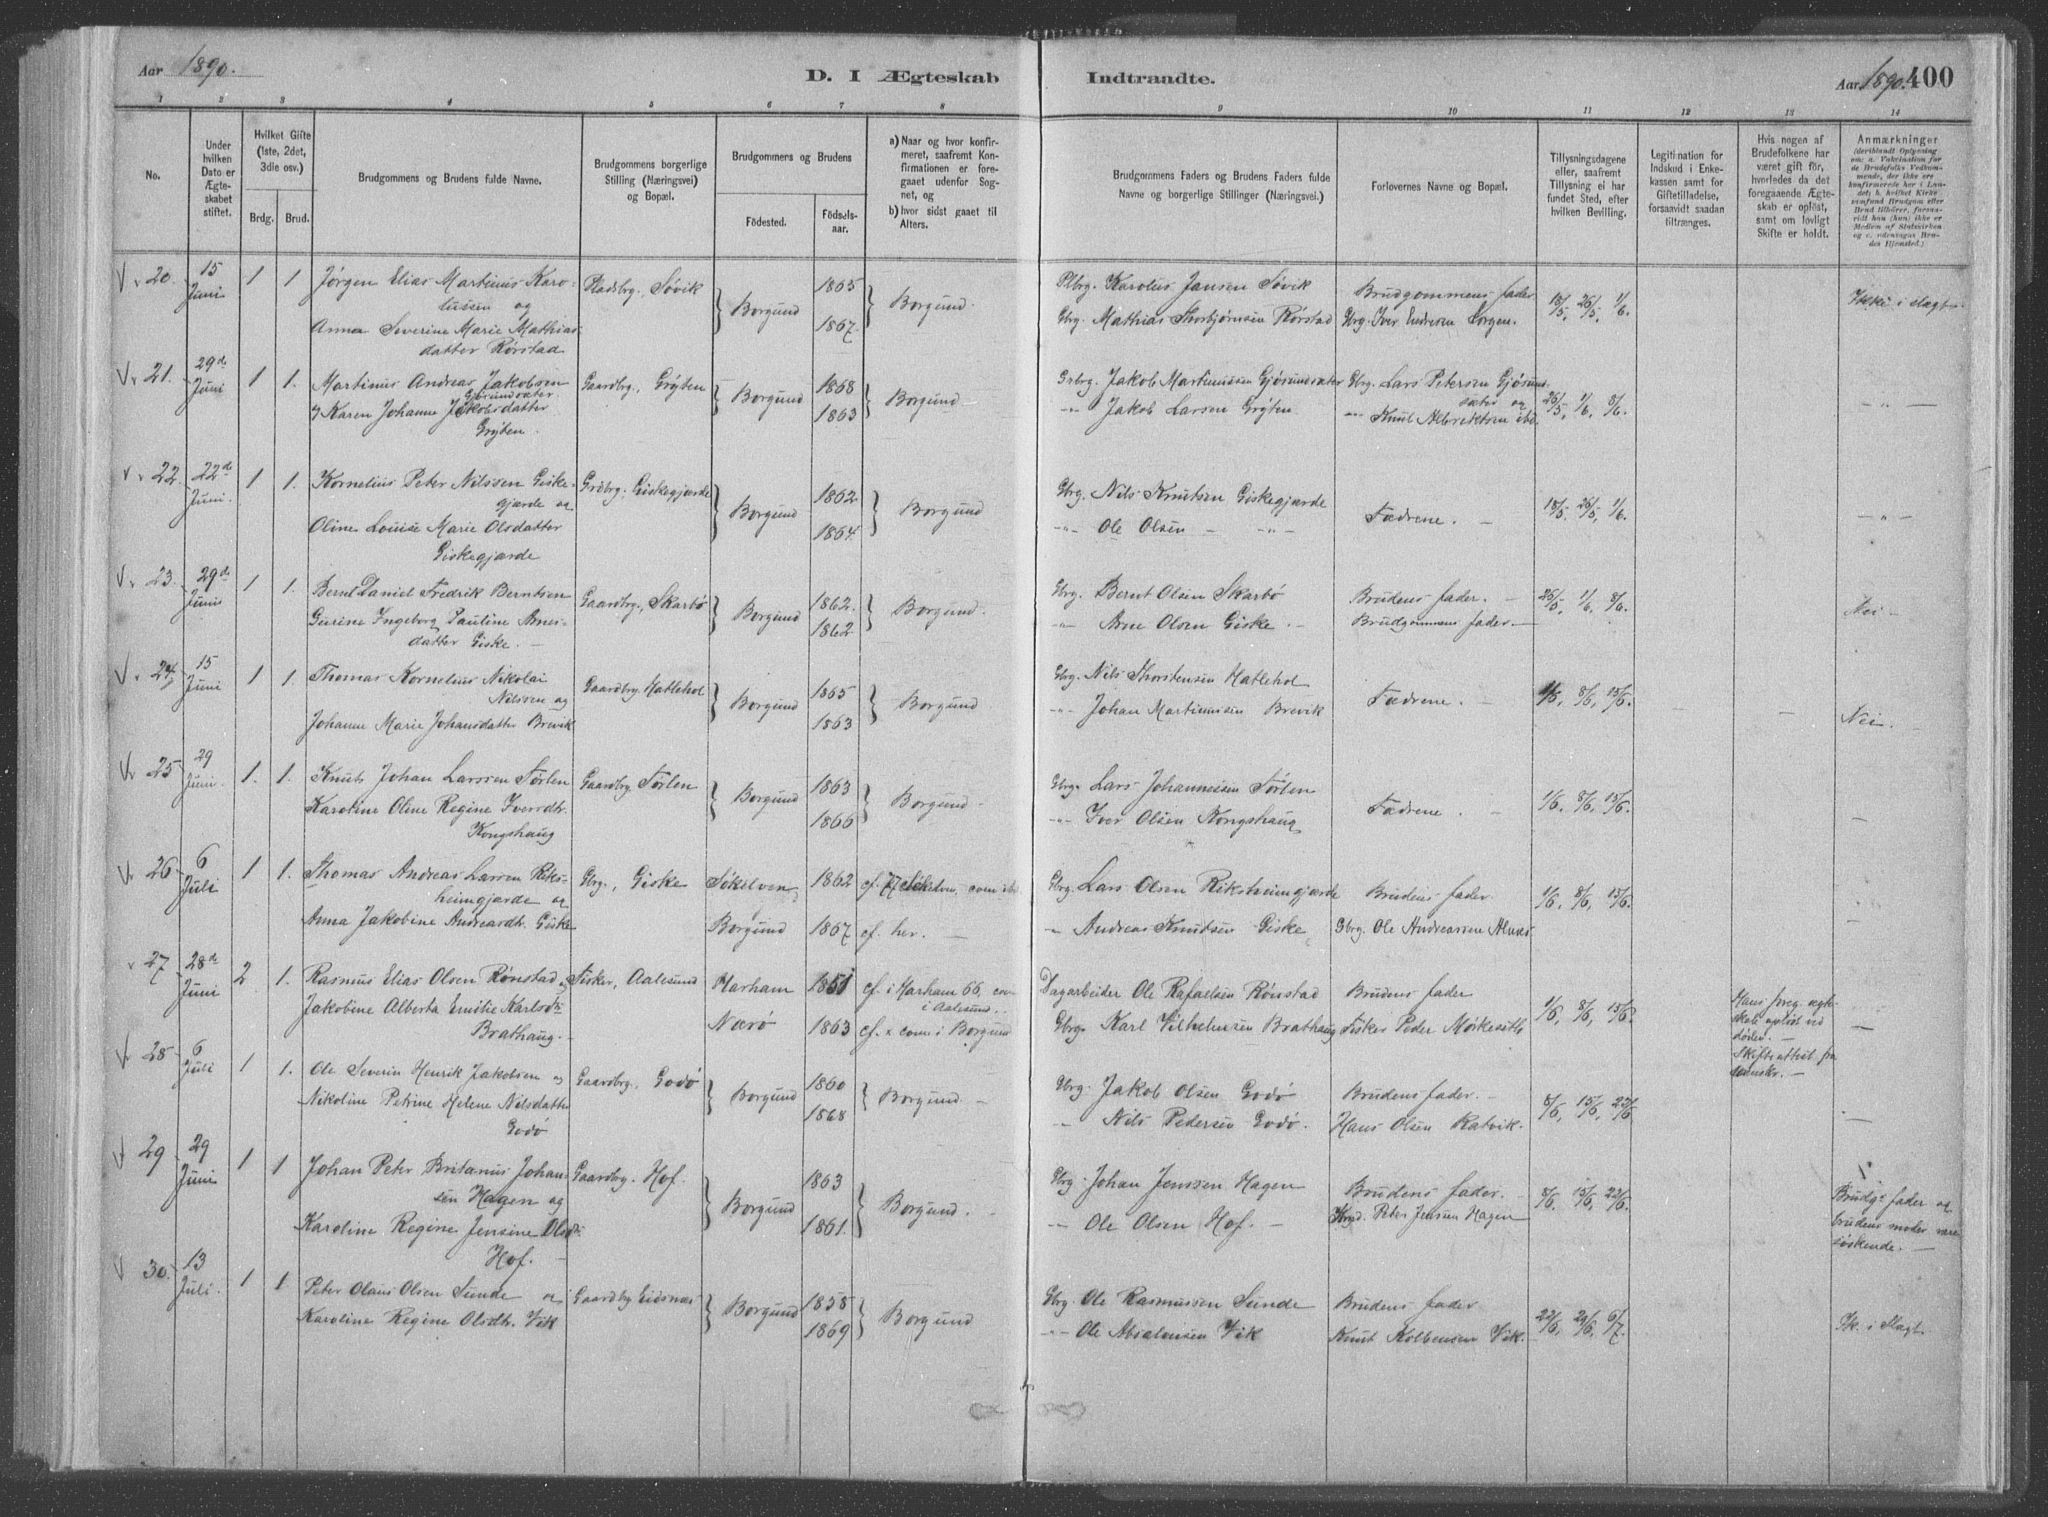 Aar 1890.
D. I Ægteskab Indtrandte.
Aar 1890. 400
1 2 3 4 5 6 7 8 9 10 11 12 13 14
No.
Under hvilken Dato er Ægteskabet stiftet.
Hvilket Gifte (1ste, 2det, 3die osv.)
Brdg. Brud.
Brudgommens og Brudens fulde Navne.
Brudgommens borgerlige Stilling (Næringsvei) og Bopæl.
Brudgommens og Brudens
Fødested. Fødselsaar.
a) Naar og hvor konfirmeret, saafremt Konfirmationen er foregaaet udenfor Sognet, og
b) hvor sidst gaaet til Alters.
Brudgommens Faders og Brudens Faders fulde Navne og borgerlige Stillinger (Næringsvei.)
Forlovernes Navne og Bopæl.
Tillysningsdagene eller, saafremt Tillysning ei har fundet Sted, efter hvilken Bevilling.
Legitimation for Indskud i Enkekassen samt for Giftetilladelse, forsaavidt saadan tiltrænges.
Hvis nogen af Brudefolkene har været gift før, hvorledes da det foregaaende Ægteskab er opløst, samt om lovligt Skifte er holdt.
Anmærkninger
20. 15 Juni 1 1
Jørgen Elias Martinus Karolussen og
Anna Severine Marie Mathiasdatter Rørstad
Pladsbrg. Søvik
Borgund 1865 1867. Borgund.
Plbrg. Karolus Jansen Søvik
Gbrg. Mathias Thorbjørnsen Rørstad
Brudgommens fader
Gbrg. Iver Endresen Lorgen.
18/5, 26/5, 1/6.
Ikke i slagt
21. 29de Juni 1 1.
Martinus Andreas Jakobsen Gjøsundsæter
& Karen Johanne Jakobsdatter Grýten.
Gaardbrg. Grýten
Borgund 1868 1863 Borgund
Grbrg. Jakob Martinussen Gjøsundsæter
-"- Jakob Larsen Grýten
Gbrg. Lars Petersen Gjøsundsæter og
-"- Knut Albriktsen ibd.
26/5, 1/6, 8/6.
-"-
22. 22de Juni. 1 1.
Kornelius Peter Nilssen Giskegjærde og
Oline Louise Marie Olsdatter Giskegjærde
Grdbrg. Giskegjærde
Borgund 1862. 1864. Borgund
Gbrg. Nils Knutsen Giskegjærde
-"- Ole Olsen -"-
Fædrene.
18/5, 26/5, 1/6.
-"-
23. 29de Juni 1 1.
Bernt Daniel Fredrik Berntsen
Gurine Ingeborg Pauline Arnesdatter Giske.
Gaardbrg. Skarbø
Borgund 1862. 1862. Borgund.
Gbrg. Bernt Olsen Skarbø
-"- Arne Olsen Giske.
Brudens fader.
Brudgommens fader
26/5, 1/6, 8/6.
Nei
24. 15 Juni 1 1.
Thomas Kornelius Nikolai Nilssen og
Johanne Marie Johansdatter Brevik
Gaardbrg. Hatlehol
Borgund 1865 1863 Borgund
Gbrg. Nils Thorstensen Hatlehol
-"- Johan Martinussen Brevik
Fædrene.
1/6, 8/6, 15/6.
Nei.
25 29 Juni 1. 1.
Knut Johan Larssen Førlen
Karoline Oline Regine Iversdtr. Kongshaug
Gaardbrg. Førlen
Borgund 1863 1866 Borgund
Gbrg. Lars Johannessen Førlen
-"- Iver Olsen Kongshaug
Fædrene.
1/6. 8/6, 15/6.
26 6 Juli 1 1.
Thomas Andreas Larsen Riksheimgjærde og
Anna Jakobine Andreasdtr. Giske
Gbrg., Giske
Søkelven 1862 cf. i Søkelven, com ibd
Borgund 1867 cf. her.
Gbrg. Lars Olsen Riksheimgjærde
" Andreas Knudsen Giske
Brudens fader.
Gbrg. Ole Andreassen Alnæs
1/6, 8/6, 15/6.
27 28de Juni 2 1.
Rasmus Elias Olsen Rønstad og
Jakobine Alberta Emilie Karlsdtr Brathaug.
Fisker, Aalesund
Harham 1851 cf. i Harham 66, com i Aalesund
Nærø 1863 cf. & com i Borgund
Dagarbeider Ole Rafaelsen Rønstad
Gbrg. Karl Vilhelmsen Brathaug
Brudens fader
Fisker Peder Mørkesitle
1/6, 8/6, 15/6.
Hans foreg. ægteskab opløst ved døden.
Skifteattest fra
28 6 Juli 1 1.
Ole Severin Henrik Jakobsen og
Nikoline Petrine Helene Nilsdatter Godø
Gaardbrg. Godø
Borgund 1860 1868 Borgund.
Gbrg. Jakob Olsen Godø
" Nils Pedersen Godø.
Brudens fader.
Hans Olsen Ratvik.
8/6, 15/6, 22/6
29 29 Juni 1 1
Johan Peter Britanus Johansen Hagen og
Karoline Regine Jensine Olsdtr Hof.
Gaardbrg. Hof.
Borgund 1863 1861. Borgund.
Gbrg. Johan Jenssen Hagen
-"- Ole Olsen Hof.
Brudens fader.
Peter Jensen Hagen
8/6. 15/6, 22/6.
Brudgs fader og brudens moder vare søskende.
30. 13 Juli. 1 1.
Peter Olaus Olsen Sunde og
Karoline Regine Olsdtr. Vik
Gaardbrg Eidsnæs
Borgund 1858 1869 Borgund
Gbrg. Ole Rasmussen Sunde
-"- Ole Absalonsen Vik
Brudens fader
Knut Kolbensen Vik.
22/6, 29/6, 6/7.
Ik. i Slagt